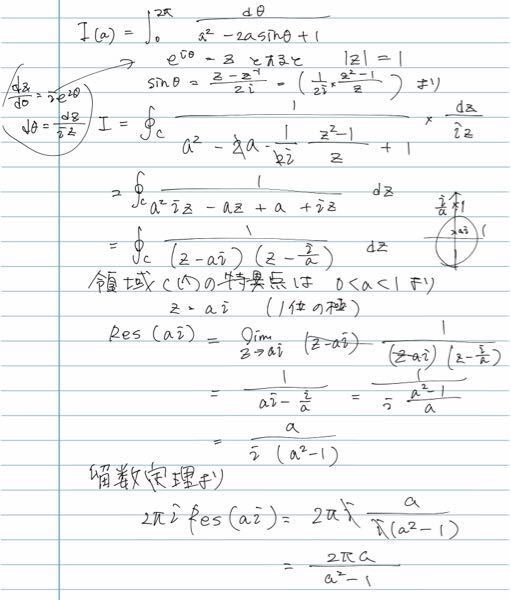 I(a) = ∫₀^{2π} dθ / (a² - 2a sinθ + 1)
e^{iθ} = z とおくと |z| = 1
sinθ = (z - z⁻¹)/2i = (1/2i × (z² - 1)/z) より
dz/dθ = ie^{iθ}
dθ = dz/iz
I = ∮_C 1 / (a² - 2a · 1/2i · (z² - 1)/z + 1) × dz/iz
= ∮_C 1 / (a²iz - az² + a + iz) dz
= ∮_C 1 / ((z - ai)(z - i/a)) dz
i/a 1
ai 1
領域C内の特異点は 0 < a < 1 より
z = ai (1位の極)
Res(ai) = lim_{z→ai} (z - ai) 1 / ((z - ai)(z - i/a))
= 1 / (ai - i/a) = 1 / (i (a² - 1)/a)
= a / (i (a² - 1))
留数定理より
2πi Res(ai) = 2πi a / (i(a² - 1))
= 2πa / (a² - 1)